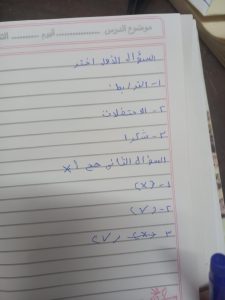 موضوع الدرس ............... اليوم ............ الت
السؤال الأول اختر
١- الخرائط
٢- الاحتفالات
٣- شكرا
السؤال الثاني صح أ x
١- (x)
٢- (√)
٣- (√)